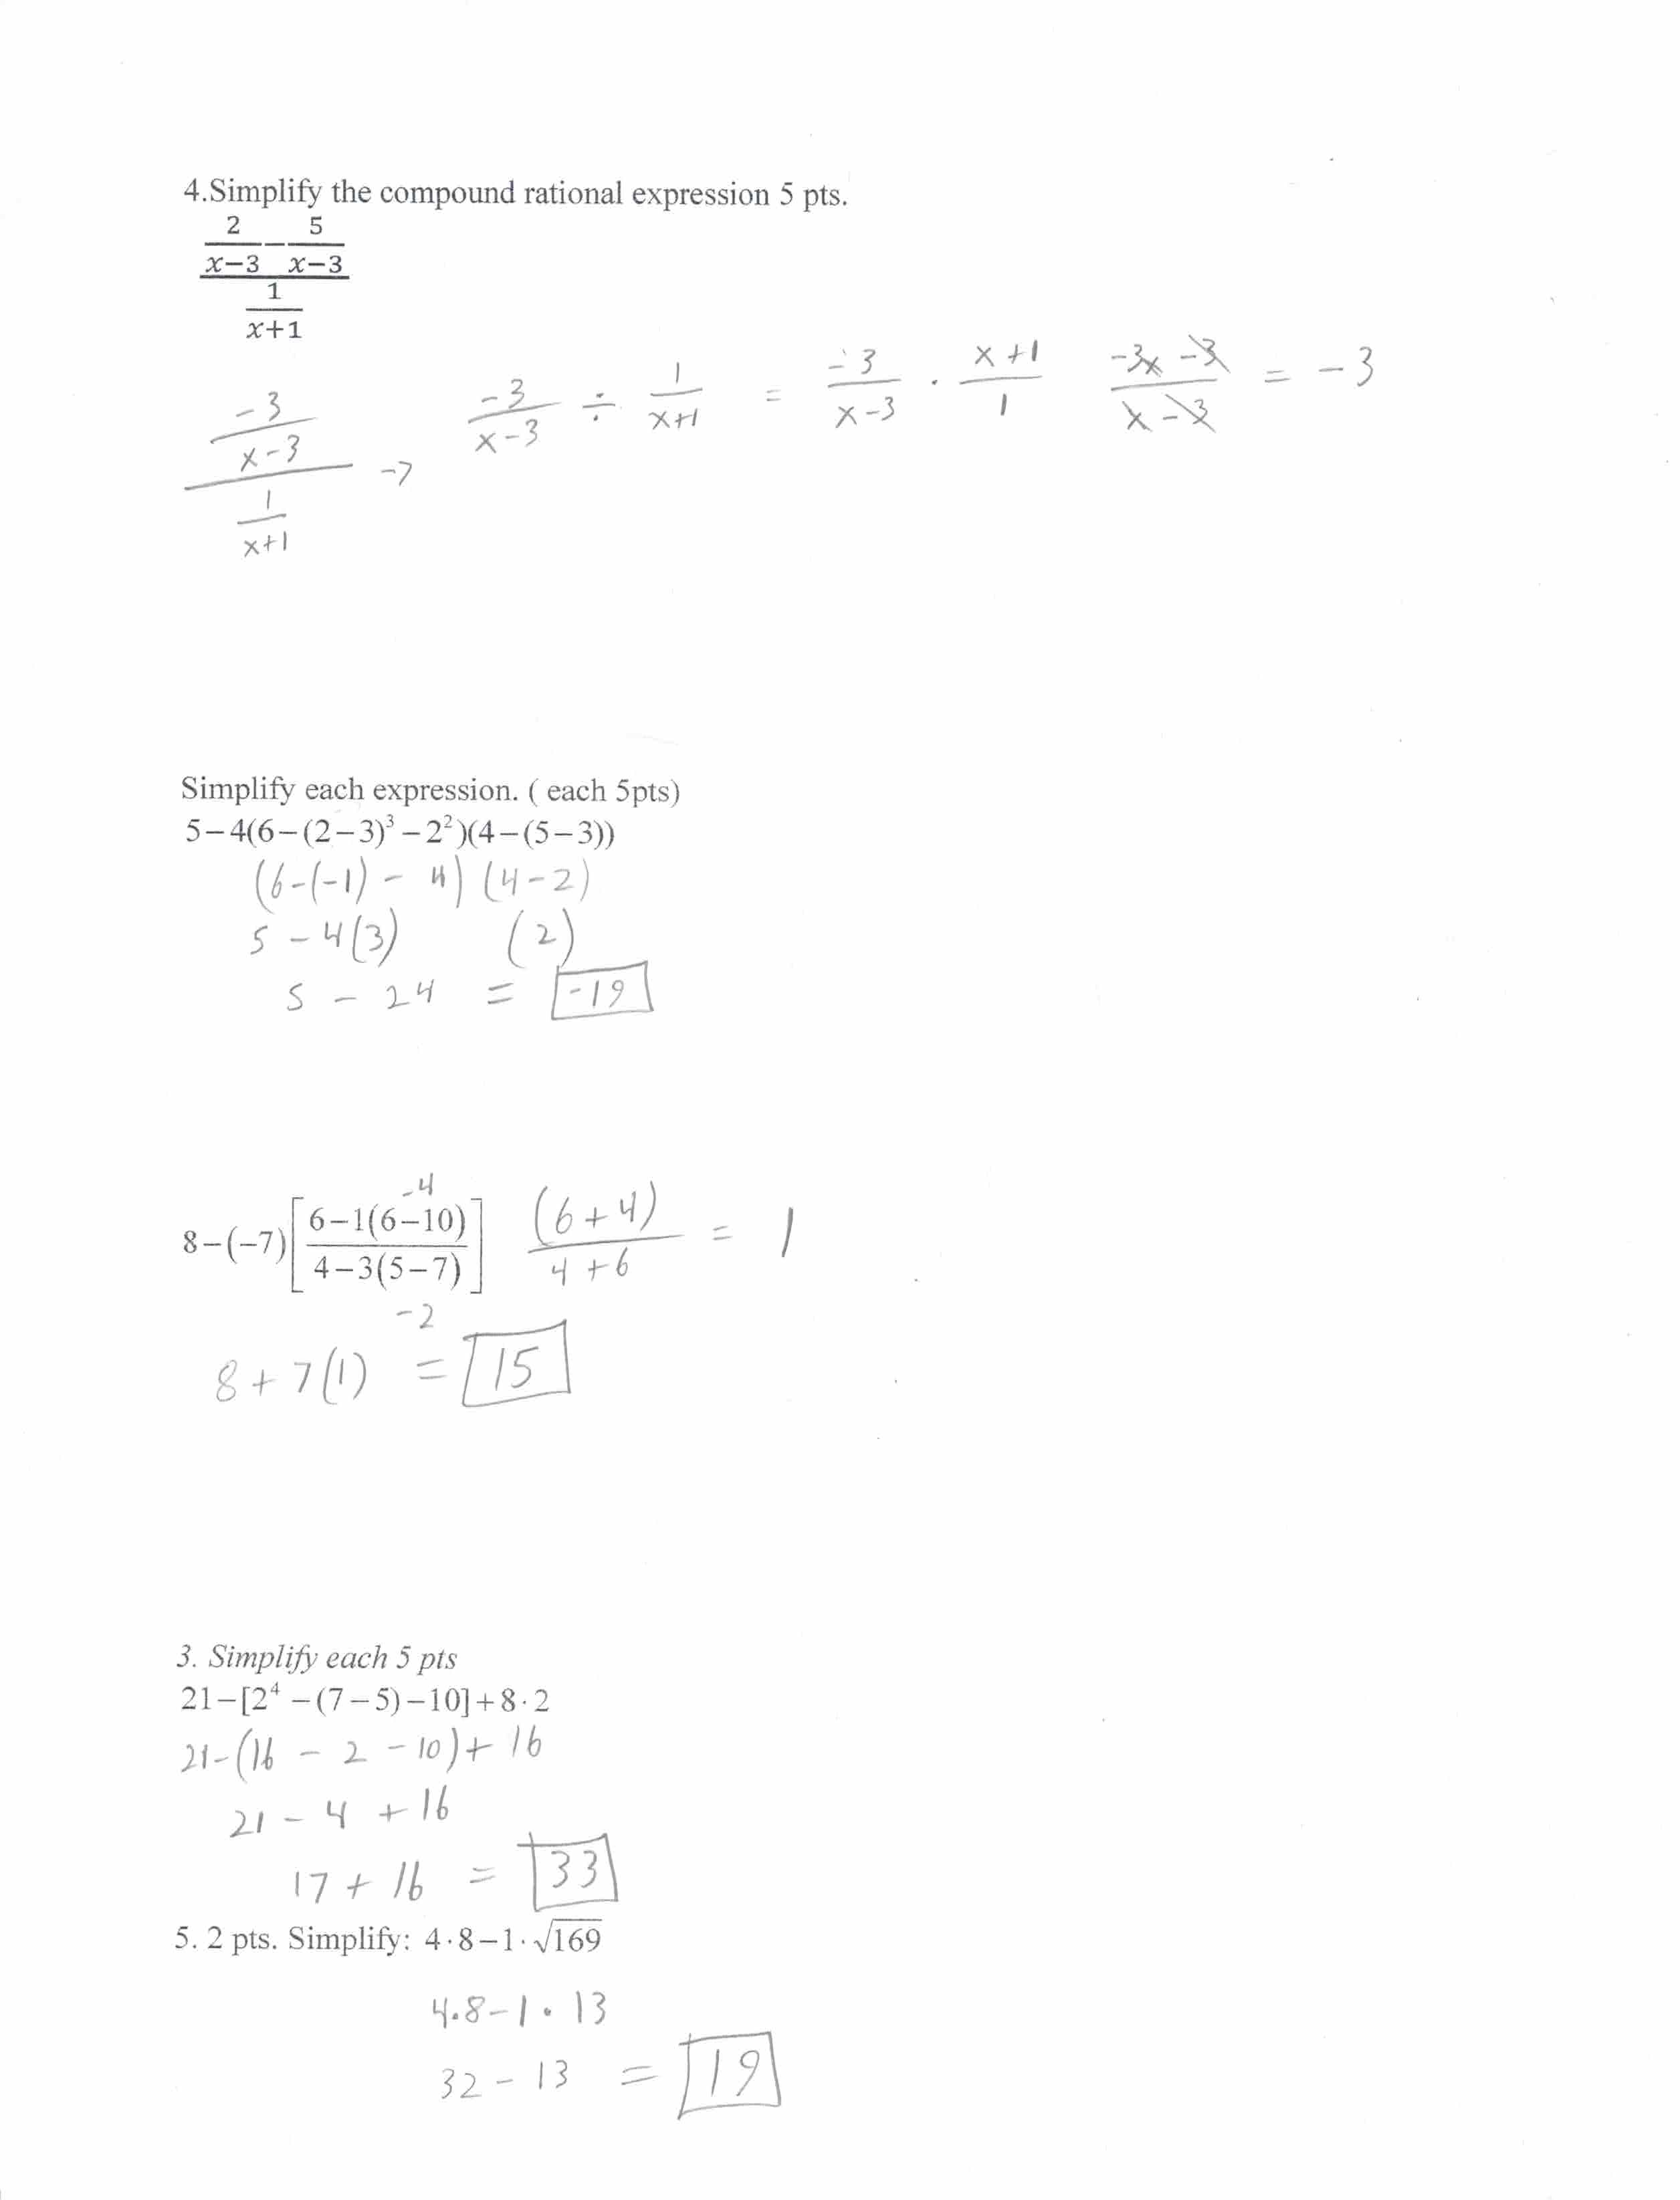 4.Simplify the compound rational expression 5 pts.
2/(x−3) − 5/(x−3)
1/(x+1)
-3/(x-3) / 1/(x+1) → -3/(x-3) ÷ 1/(x+1) = -3/(x-3) · (x+1)/1 (-3x -3)/(x-3) = -3
Simplify each expression. ( each 5pts)
5−4(6−(2−3)³−2²)(4−(5−3))
(6-(-1) - 4) (4-2)
5 - 4(3) (2)
5 - 24 = -19
-4
8−(−7)[6−1(6−10)/4−3(5−7)] (6+4)/4+6 = 1
-2
8 + 7(1) = 15
3. Simplify each 5 pts
21−[2⁴−(7−5)−10]+8·2
21-(16 - 2 - 10)+ 16
21 - 4 + 16
17 + 16 = 33
5. 2 pts. Simplify: 4·8−1·√169
4·8-1·13
32 - 13 = 19